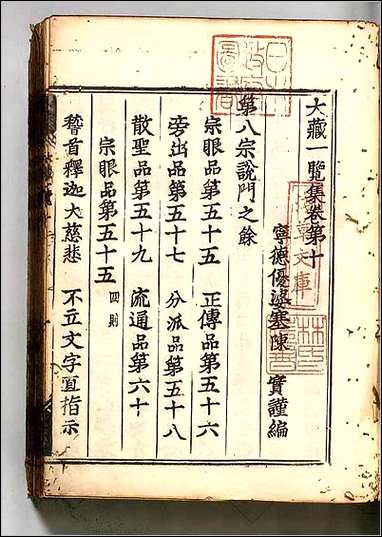 大藏一覽集卷第十
寧德優婆塞陳　實謹編
第八宗說門之餘
宗眼品第五十五　正傳品第五十六
旁出品第五十七　分派品第五十八
散聖品第五十九　流通品第六十
宗眼品第五十五　四則
稽首釋迦大慈悲　不立文字直指示